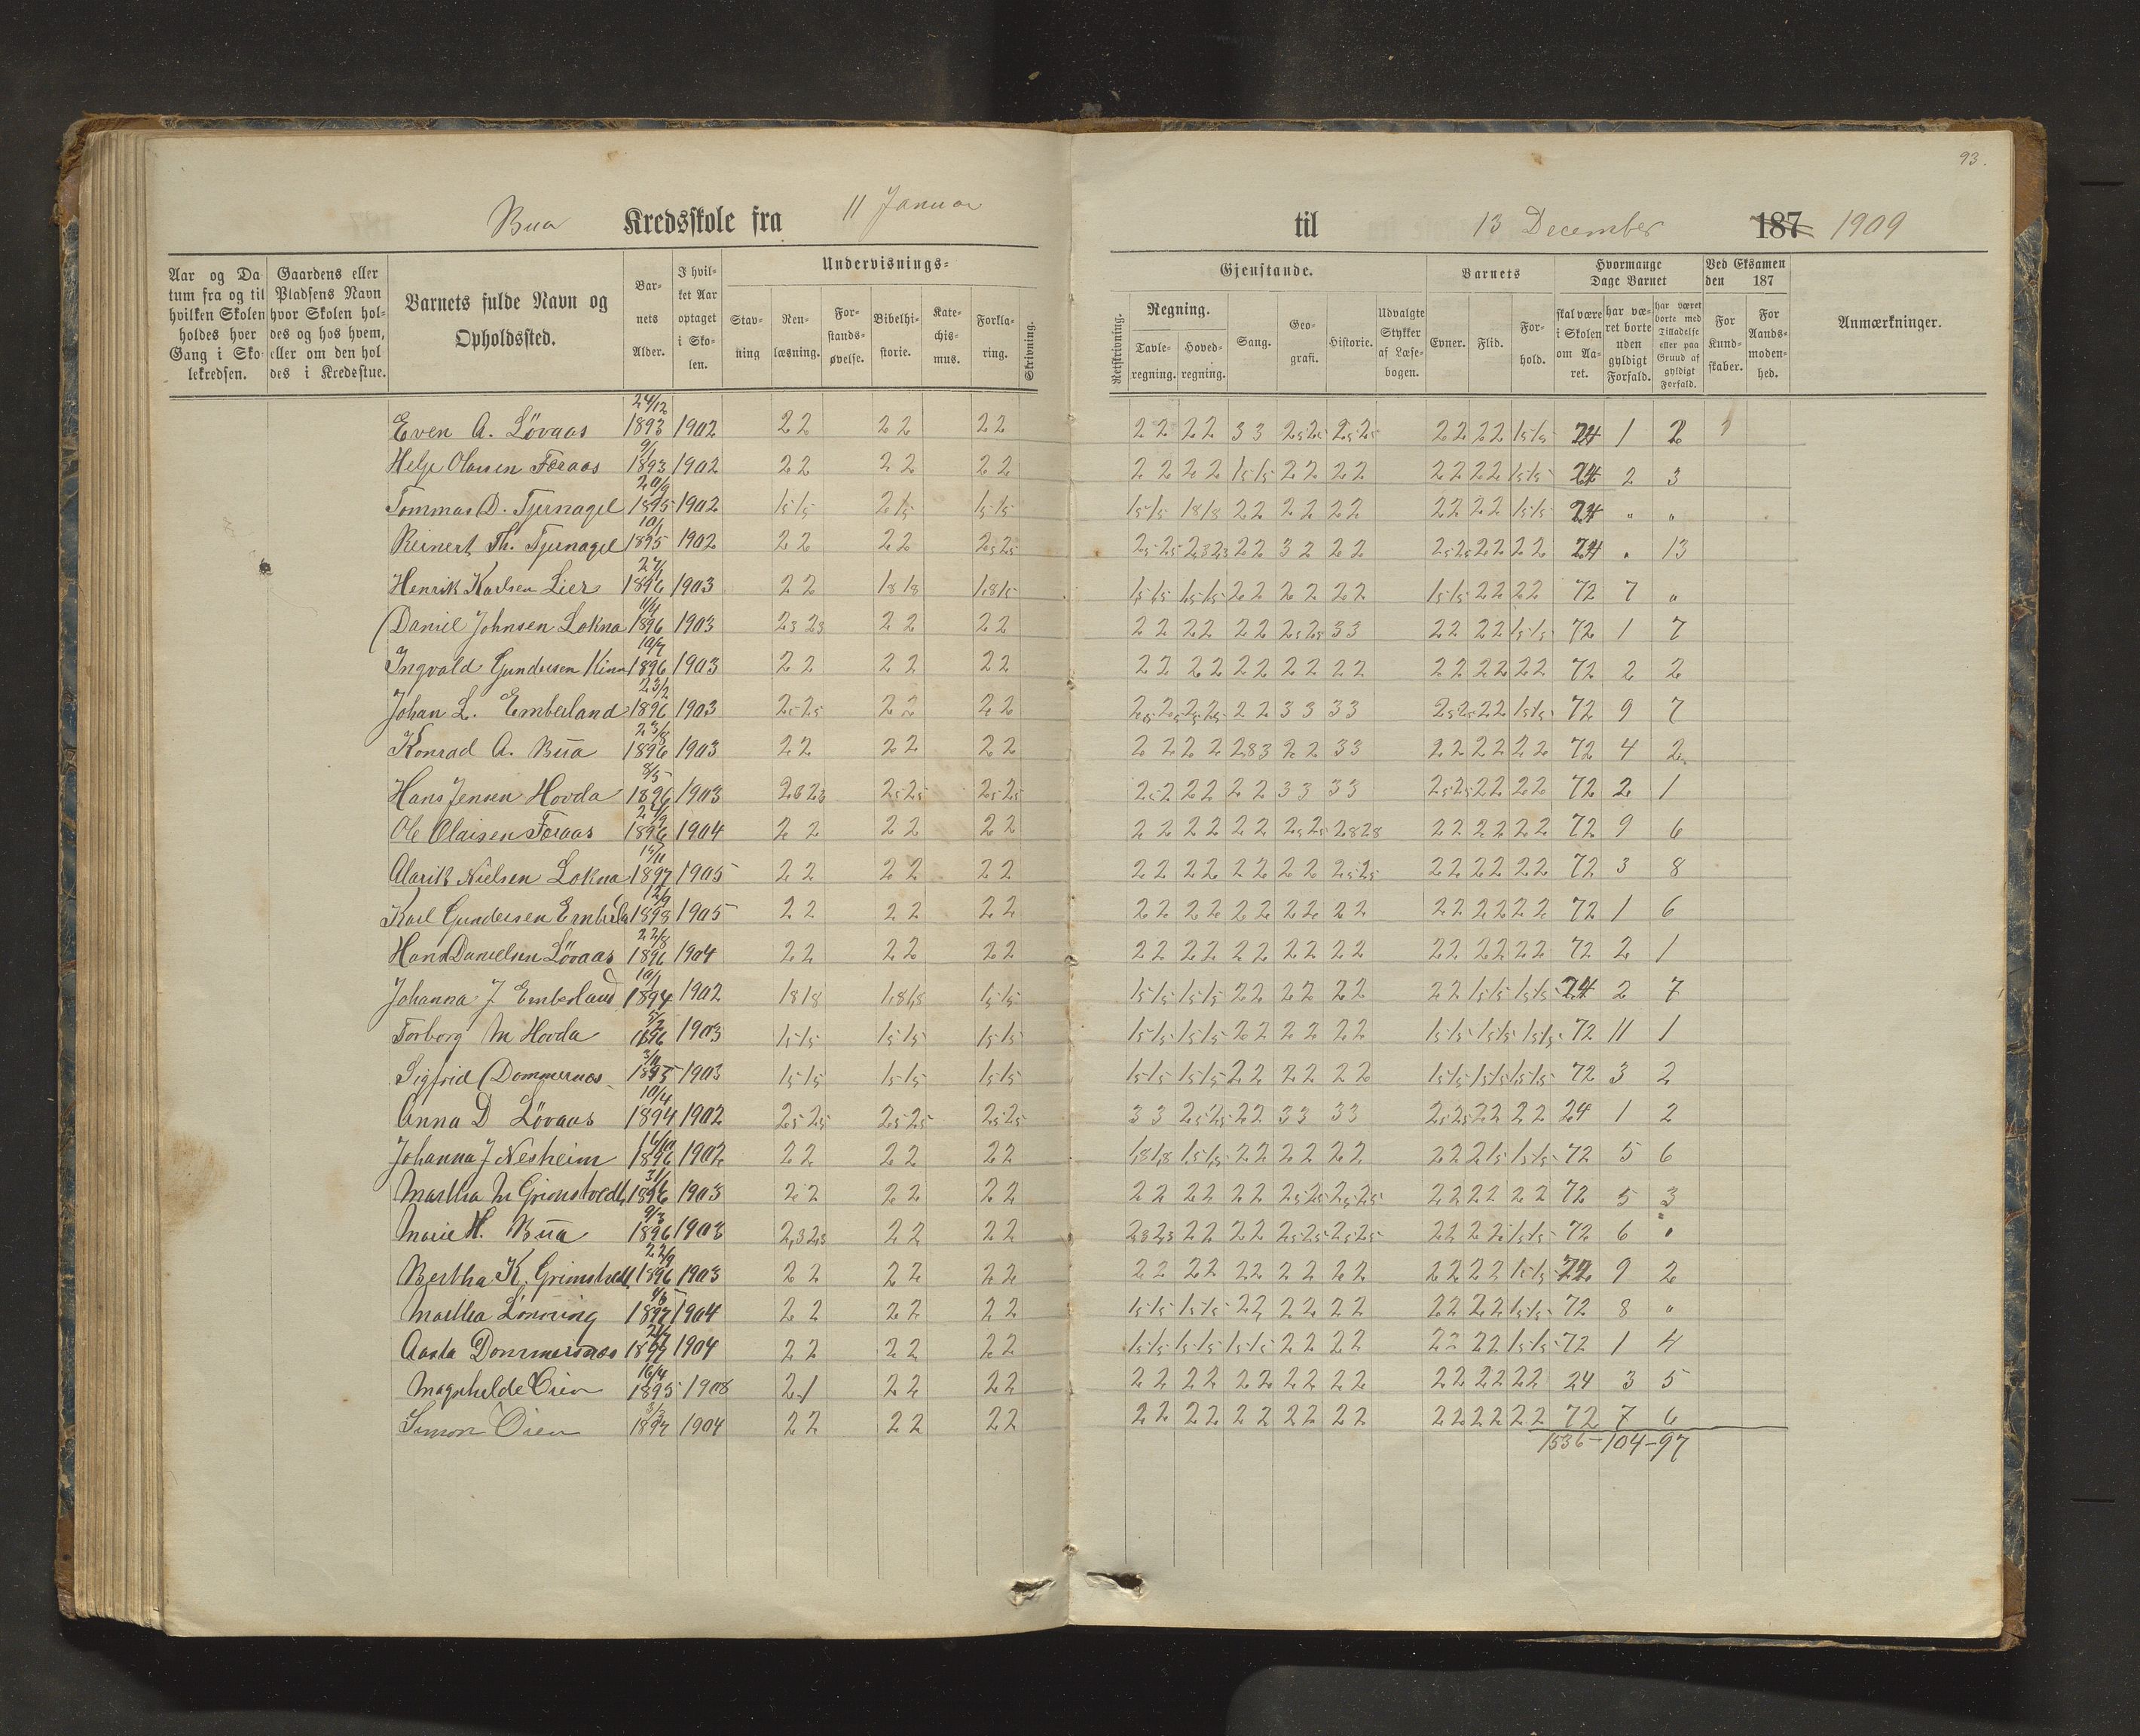 93.
Bua Kredsskole fra 11 Januar til 13 December 187 1909
Aar og Da tum fra og til hvilken Skolen holdes hver Gang i Sko- lekredsen.
Gaardens eller Pladsens Navn hvor Skolen hol- des og hos hvem, eller om den hol des i Kredsstue.
Barnets fulde Navn og Opholdssted.
Bar- nets Alder.
I hvil- ket Aar optaget i Sko- len.
Undervisnings-
Stav- ning
Ren- læsning.
For- stands- øvelse.
Bibelhi- storie.
Kate- chis- mus.
Forkla- ring.
Skrivning.
Gjenstande.
Retskrivning.
Regning.
Tavle- regning.
Hoved- regning.
Sang.
Geo- grafi.
Historie.
Udvalgte Stykker af Læse- bogen.
Barnets
Evner.
Flid.
For- hold.
Hvormange Dage Barnet
skal være i Skolen om Aa- ret.
har væ- ret borte uden gyldigt Forfald.
har været borte med Tilladelse eller paa Grund af gyldigt Forfald.
Ved Eksamen den 187
For Kund- skaber.
For Aands- moden- hed.
Anmærkninger.
Even A. Lövaas 24/12 1893 1902 22 22 22 22 22 33 2525 2525 22 22 1515 24 1 2
Helje Olausen Foraas 9/1 1893 1902 22 22 22 22 22 1515 22 22 22 22 1515 24 2 3
Tommas D. Tjernagel 20/9 1895 1902 1515 215 1515 1515 1818 22 22 22 22 22 1515 24 " "
Reinert Th. Tjernagel 10/1 1895 1902 22 22 2525 2525 2323 22 32 22 2525 22 22 24 " 13
Henrik Karlsen Lier 27/1 1896 1903 22 1818 1815 1515 1515 22 22 22 1515 22 22 72 7 "
Daniel Johnsen Lokna 11/4 1896 1903 2323 22 22 22 22 22 2525 33 22 22 1515 72 1 7
Ingvald Gundersen Kinn 10/7 1896 1903 22 22 22 22 22 22 22 22 22 22 22 72 2 2
Johan L. Emberland 23/2 1896 1903 2525 22 22 2525 2525 22 33 33 2525 22 1515 72 9 7
Konrad A. Bua 23/8 1896 1903 22 22 22 22 22 283 22 33 22 22 22 72 4 2
Hans Jensen Hovda 8/5 1896 1903 2323 2525 2525 252 22 22 33 33 2525 22 22 72 2 1
Ole Olaisen Foraas 1896 1904 22 22 22 22 22 22 2525 2828 22 22 22 72 9 6
Alarik Nielsen Lokna 1897 1905 22 22 22 22 22 22 22 2525 22 22 22 72 3 8
Karl Gundersen Emberla 12/9 1898 1905 22 22 22 22 22 22 22 22 22 22 22 72 1 6
Hans Danielsen Lövaas 22/8 1896 1904 22 22 22 22 22 22 22 22 22 22 22 72 2 1
Johanna J Emberland 10/1 1894 1902 1818 1818 1515 1515 1515 22 22 22 22 1515 1515 24 2 7
Torborg M Hovda 1896 1903 1515 1515 1515 1515 1515 22 22 22 1515 1515 1515 72 11 1
Sigfrid Dommersnes 3/11 1895 1903 1515 1515 1515 1515 1515 22 22 22 1515 1515 1515 72 3 2
Anna D Lövaas 10/4 1894 1902 2525 2525 2525 33 2525 22 33 33 2525 22 22 24 1 2
Johanna J Nesheim 1896 1902 22 22 22 1818 1515 22 22 22 22 215 1515 72 5 6
Martha M Grimstvedt 3/1 1896 1903 22 22 22 22 22 22 2525 2525 22 22 22 72 5 3
Marie H. Bua 9/3 1896 1903 2323 22 22 2323 22 22 2525 2525 22 22 1515 72 6 "
Bertha K. Grimstvedt 22/9 1896 1903 22 22 22 22 22 22 22 22 22 22 1515 72 9 2
Martha Lönning 1897 1904 22 22 22 1515 1515 22 22 22 22 22 1515 72 8 "
Aasta Dommersnes 1897 1904 22 22 22 1515 1515 1515 22 22 22 22 1515 72 1 4
Magnhilde Öien 16/4 1895 1908 21 22 22 22 22 22 22 22 22 22 22 24 3 5
Simon Öien 3/3 1897 1904 22 22 22 22 22 22 22 22 22 22 22 72 7 6
1536-104-97